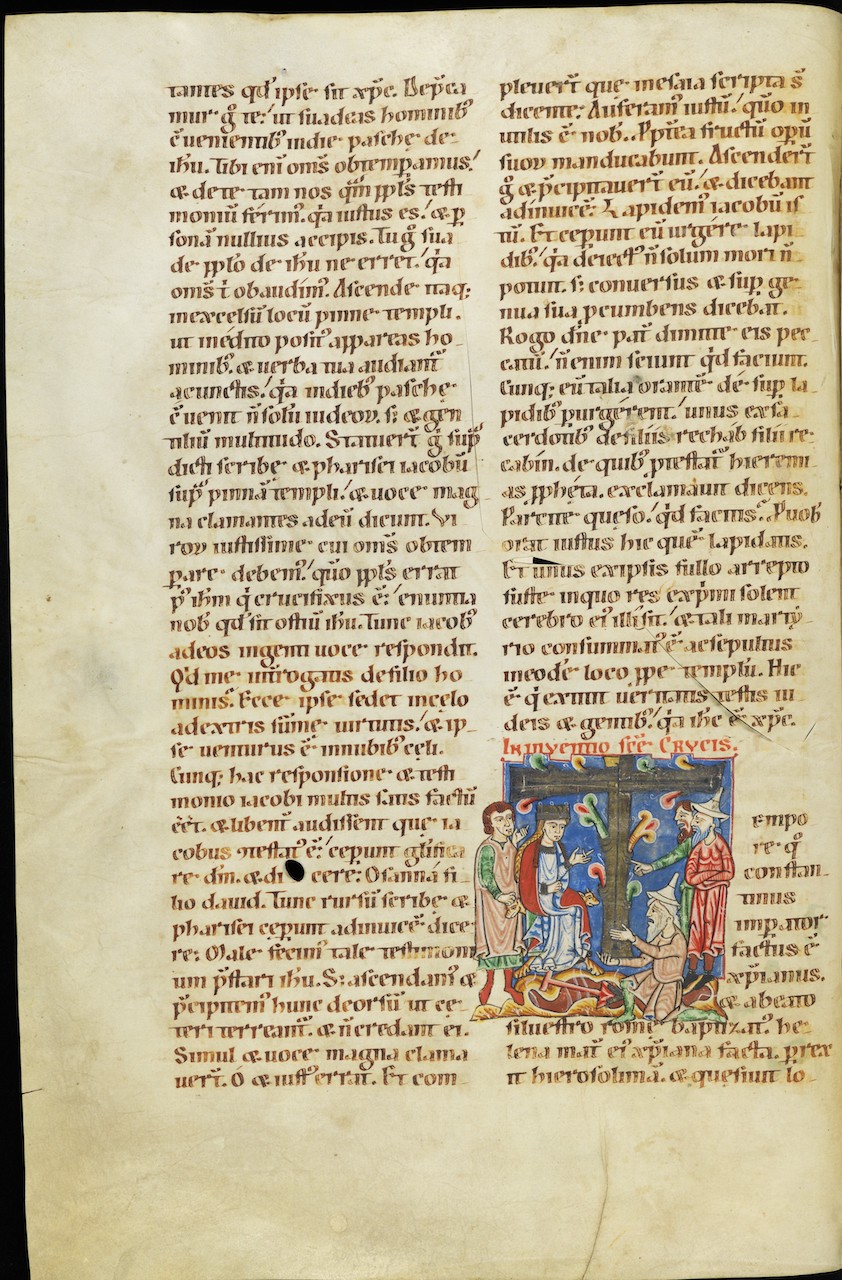 tantes qd' ipse sit xp̄c. Dep̄ca
mur g̊ te.' ut suadeas hominib'
c̄uenientib' in die paschę de
ihu. Tibi eni oms̄ obtemperamus.'
& de te tam nos qm̄ ppl's testi
moniū ferim'. qa iustus es.' & p̱
sonā nullius accipis. Tu g̊ sua
de pplo de ihu ne erret.' qa
oms̄ t' obaudim'. Ascende itaq;
in excelsū locū pinne templi.
ut in edito posit' appareas ho
minib'. & uerba tua audiant'
a cunctis.' qa in dieb' paschę
c̄uenit n̄ solū iudeoꝝ. s; & gen
tiliū multitudo. Statuert̄ g̊ sup̱
dicti scribę & pharisei iacobū
sup̱ pinnā templi.' & uoce mag
na clamantes ad eū dicunt. Vi
roꝝ iustissime cui oms̄ obtem
perare debem'.' qm̄ ppl's errat
p' ihm q̇ crucifixus ē.' enuntia
nob' qd' sit ostiū ihu. Tunc iacob'
ad eos ingenti uoce respondit.
Qd' me int̄rogatis de filio ho
minis'. Ecce ipse sedet in celo
ad extris sūme uirtutis.' & ip
se uenturus ē in nubib' celi.
Cunq; hac responsione & testi
monio iacobi multis satis factū
eēt. & libent' audissent que ia
cobus testat' ē.' cepunt glifica
re dm̄. & di cere: Osanna fi
lio dauid. Tunc rursū scribe &
pharisei cepunt adinuicē dice
re: Male fecim' tale testimoni
um p̄stari ihu. S; ascendam' &
p̄cipitem' hunc deorsū ut ce
teri terreant'. & n̄ credant ei.
Simul & uoce magna clama
uert̄. O & iust' errat. Et com
pleuert̄ que in esaia scripta s̄
dicente: Auferam' iustū.' qm̄ in
utilis ē nob'. Ppt̄ea fructū opū
suoꝝ manducabunt. Ascendert̄
g̊ & p̄cipitauert̄ eū.' & dicebant
adinuicē: Lapidem' iacobū is
tū. Et cepunt eū urgere lapi
dib'.' qa deiect' n̄ solum mori n̄
potuit. s; conuersus & sup̱ ge
nua sua p̱cumbens dicebat.
Rogo dn̄e pat̄ dimitte eis pec
catū.' n̄ enim sciunt qd' faciunt.
Cunq; eū talia orantē de sup̱ la
pidib' p̱urgerent.' unus ex sa
cerdotib' de filiis rechab filii re
cabin. de quib' p̱testat' hieremi
as ppheta. exclamauit dicens.
Parcite queso.' qd' facitis'. P uob'
orat iustus hic quē lapidatis.
Et unus ex ipsis fullo arrepto
fuste in quo res exprimi solent
cerebro ei' illisit.' & tali marty
rio consummat' ē ac sepultus
in eodē loco p̱pe templū. Hic
ē q̇ extitit ueritatis testis iu
deis & gentib'.' qa ihc ē xp̄c.
In inventio scē Crvcis.
empo
re q̊
constan
tinus
imp̱ator
factus ē
xp̄ianus.
& a beato
siluestro rome baptizat'. he
lena mat̄ ei' xp̄iana facta. p̱rex
it hierosolimā. & quesiuit lo